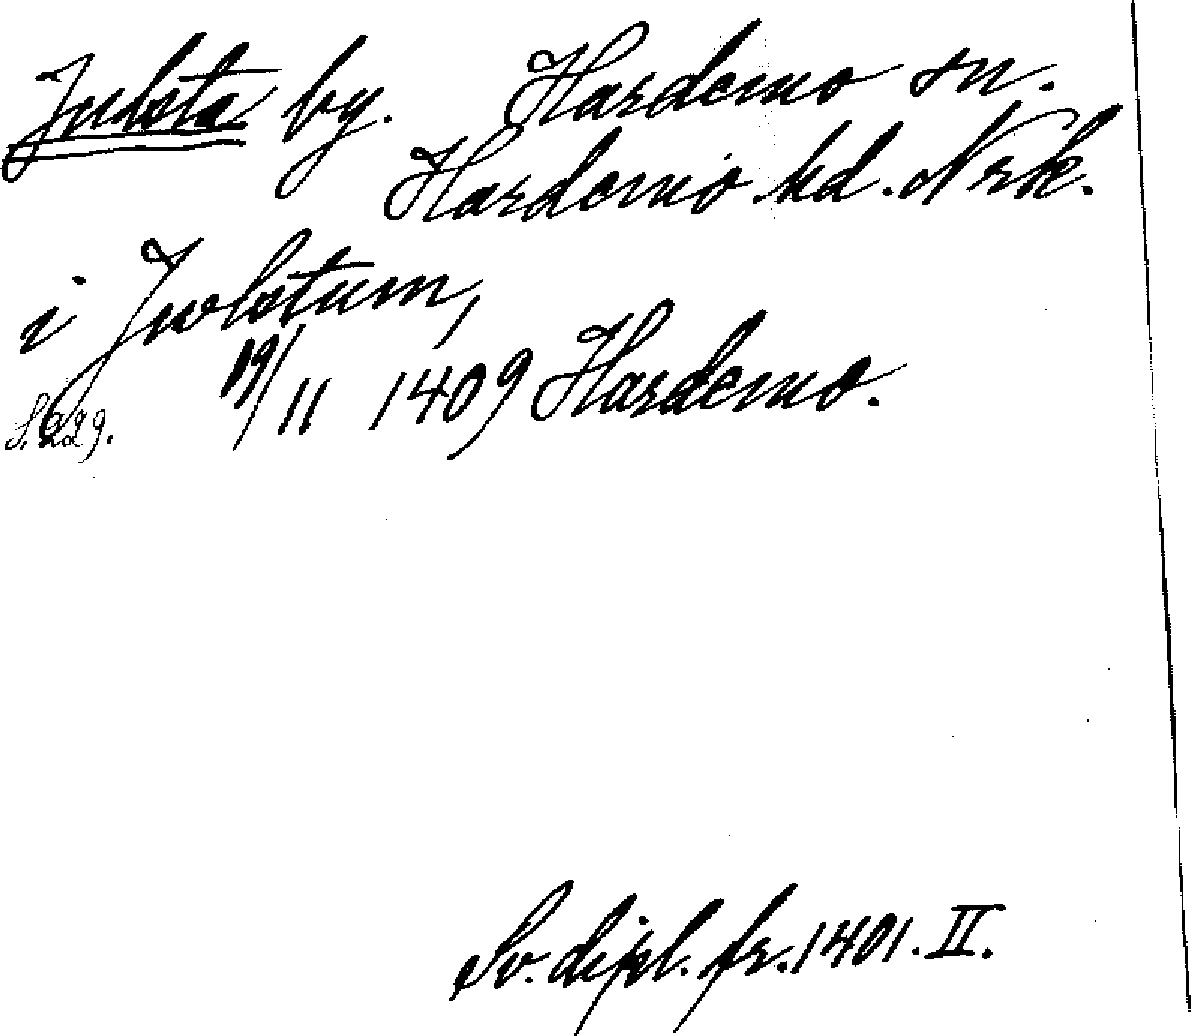 Julsta by. Hardemo sn.
Hardemo hd. Nrk.
i Jwlstum,
19/11 1409 Hardemo.
S. 229.
Sv. dipl. fr. 1401. II.